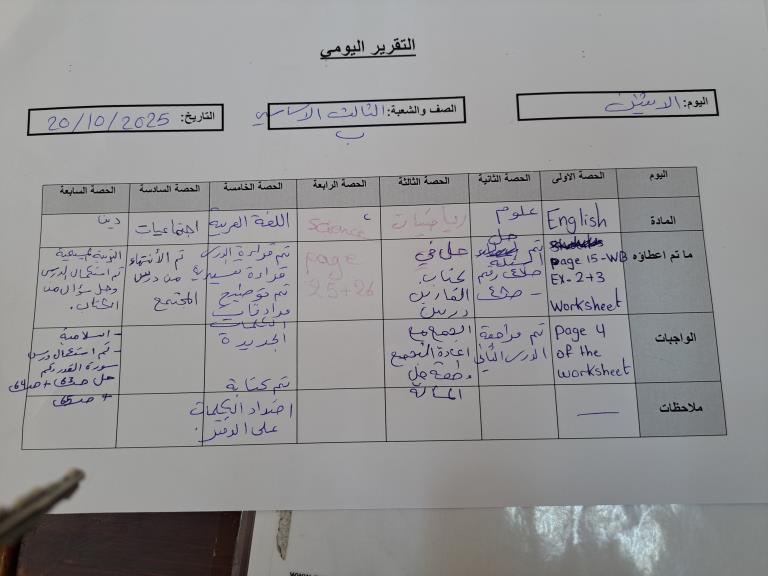 التقرير اليومي
اليوم: الاثنين
الصف والشعبة: الثالث الاساسي
ب
التاريخ: 20/10/2025
اليوم
الحصة الاولى
الحصة الثانية
الحصة الثالثة
الحصة الرابعة
الحصة الخامسة
الحصة السادسة
الحصة السابعة
المادة
English
علوم
رياضيات
science
اللغة العربية
اجتماعيات
دين
ما تم اعطاؤه
page 15-WB
EX-2+3
worksheet
تم حل
حل في
كتاب
التمارين
درس
الجمع مع
اعادة التجمع
page
25+26
تم قراءة الدرس
قراءة
تم توضيح
مرادفات
الكلمات
الجديدة
تم كتابة
اضداد الكلمات
على الدفتر.
تم الأنتهاء
من درس
المجتمع
التربية المسيحية
تم استكمال الدرس
وحل سؤال من
الكتاب.
الواجبات
page 4
of the
worksheet
تم مراجعة
الدرس الثاني
المسألة
- اسلامية
- تم استكمال درس
سورة القدر
حل ص63 + ص64
+ ص65
ملاحظات